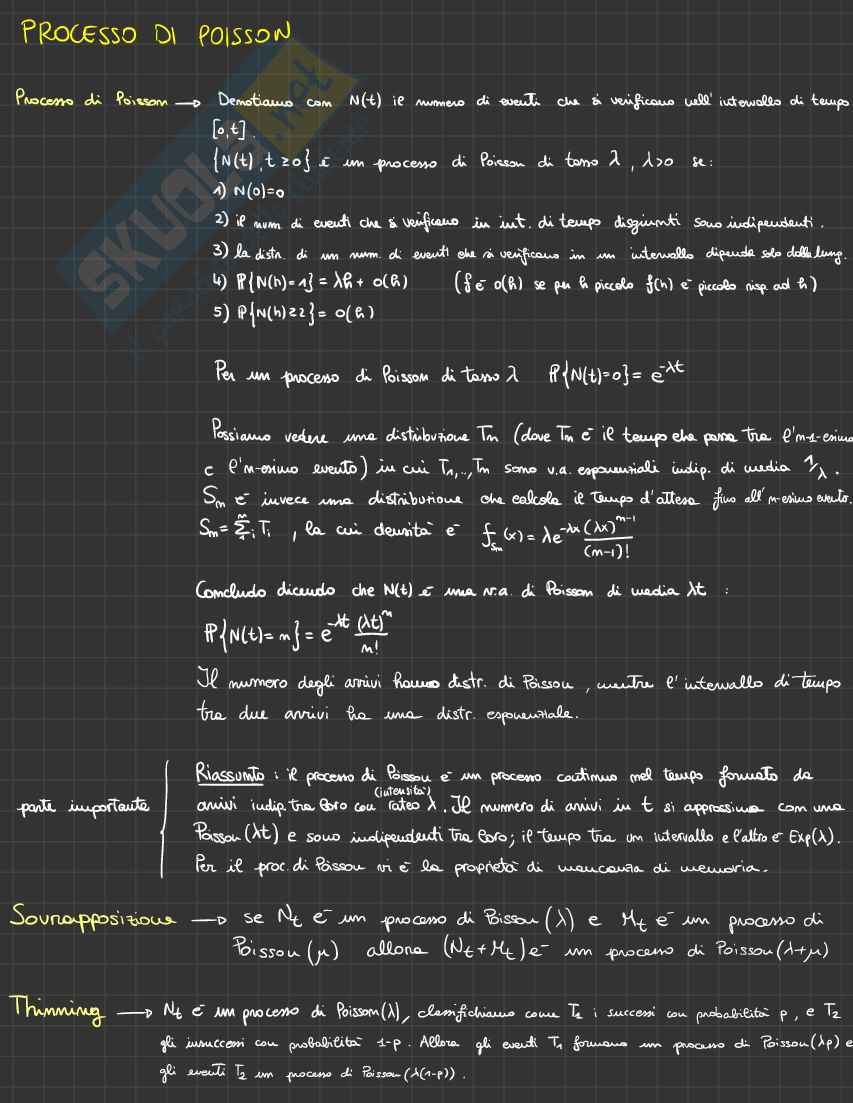 PROCESSO DI POISSON
Processo di Poisson → Denotiamo con N(t) il numero di eventi che si verificano nell'intervallo di tempo
[0,t].
{N(t), t≥0} è un processo di Poisson di tasso λ, λ>0 se:
1) N(0)=0
2) il num. di eventi che si verificano in int. di tempo disgiunti sono indipendenti.
3) la distr. di un num. di eventi che si verificano in un intervallo dipende solo dalla lung.
4) ℙ{N(h)=1} = λh + o(h) (f è o(h) se per h piccolo f(h) è piccolo risp. ad h)
5) ℙ{N(h)≥2} = o(h)
Per un processo di Poisson di tasso λ ℙ{N(t)=0} = e^{-λt}
Possiamo vedere una distribuzione Tn (dove Tn è il tempo che passa tra l'n-1-esimo
e l'n-esimo evento) in cui T1,..,Tn sono v.a. esponenziali indip. di media 1/λ.
Sn è invece una distribuzione che calcola il tempo d'attesa fino all'n-esimo evento.
Sn = Σ_1^n i Ti, la cui densità è f_{Sn}(x) = λe^{-λx} (λx)^{n-1}/(n-1)!
Concludo dicendo che N(t) è una v.a. di Poisson di media λt :
ℙ{N(t)=n} = e^{-λt} (λt)^n/n!
Il numero degli arrivi hanno distr. di Poisson, mentre l'intervallo di tempo
tra due arrivi ha una distr. esponenziale.
Riassunto : il processo di Poisson è un processo continuo nel tempo formato da
(intensità)
parte importante arrivi indip. tra loro con rateo λ. Il numero di arrivi in t si approssima con una
Poisson(λt) e sono indipendenti tra loro; il tempo tra un intervallo e l'altro è Exp(λ).
Per il proc. di Poisson vi è la proprietà di mancanza di memoria.
Sovrapposizione → se Nt è un processo di Poisson(λ) e Mt è un processo di
Poisson(μ) allora (Nt+Mt) è un processo di Poisson(λ+μ)
Thinning → Nt è un processo di Poisson(λ), classifichiamo come T1 i successi con probabilità p, e T2
gli insuccessi con probabilità 1-p. Allora gli eventi T1 formano un processo di Poisson(λp) e
gli eventi T2 un processo di Poisson(λ(1-p)).
SKUOLA.net